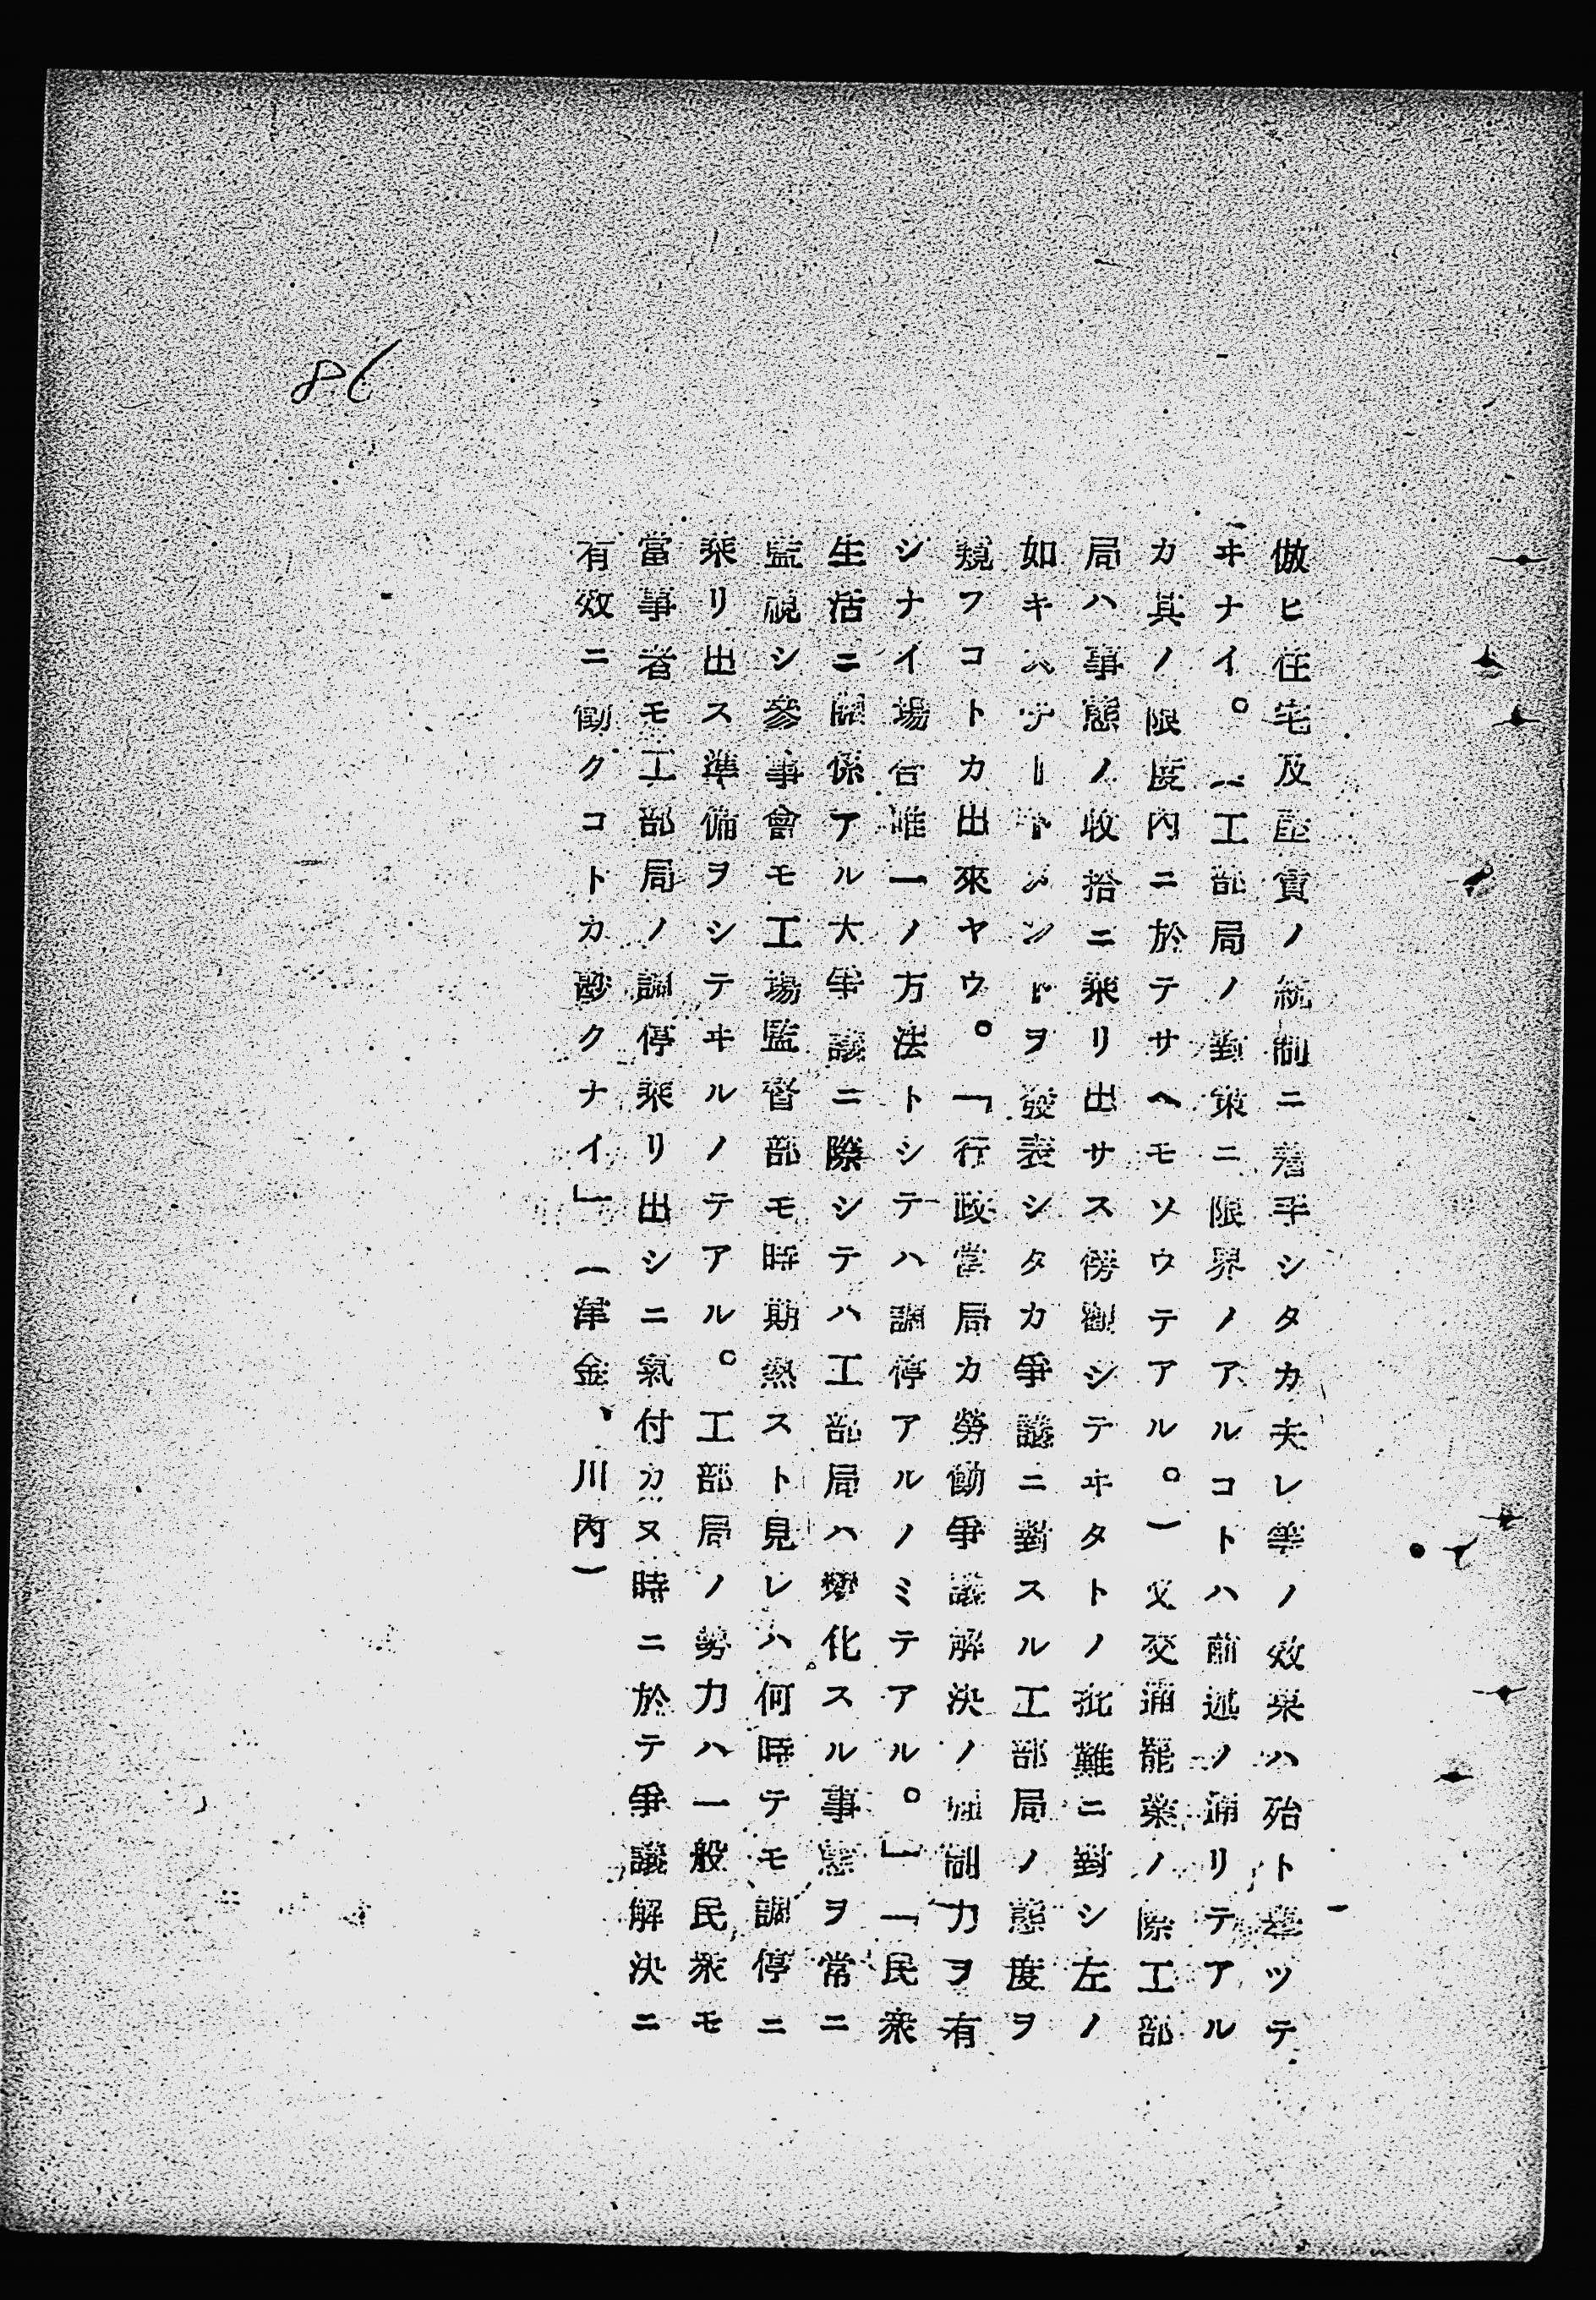 倣ヒ住宅及店賃ノ統制ニ着手シタカ夫レ等ノ效果ハ殆ト擧ツテ
ヰナイ。(工部局ノ對策ニ限界ノアルコトハ前述ノ通リテアル
カ其ノ限度内ニ於テサヘモソウテアル。)又交通罷業ノ際工部
局ハ事態ノ收拾ニ乘リ出サス傍觀シテヰタトノ批難ニ對シ左ノ
如キハテートメントヲ發表シタカ爭議ニ對スル工部局ノ態度ヲ
窺フコトカ出來ヤウ。「行政當局カ勞働爭議解決ノ强制力ヲ有
シナイ場合唯一ノ方法トシテハ調停アルノミテアル。」「民衆
生活ニ關係アル大爭議ニ際シテハ工部局ハ變化スル事態ヲ常ニ
監視シ參事會モ工場監督部モ時期熟スト見レハ何時テモ調停ニ
乘リ出ス準備ヲシテヰルノテアル。工部局ノ努力ハ一般民衆モ
當事者モ工部局ノ調停乘リ出シニ氣付カヌ時ニ於テ爭議解決ニ
有效ニ働クコトカ尠クナイ」(津金、川内)
86